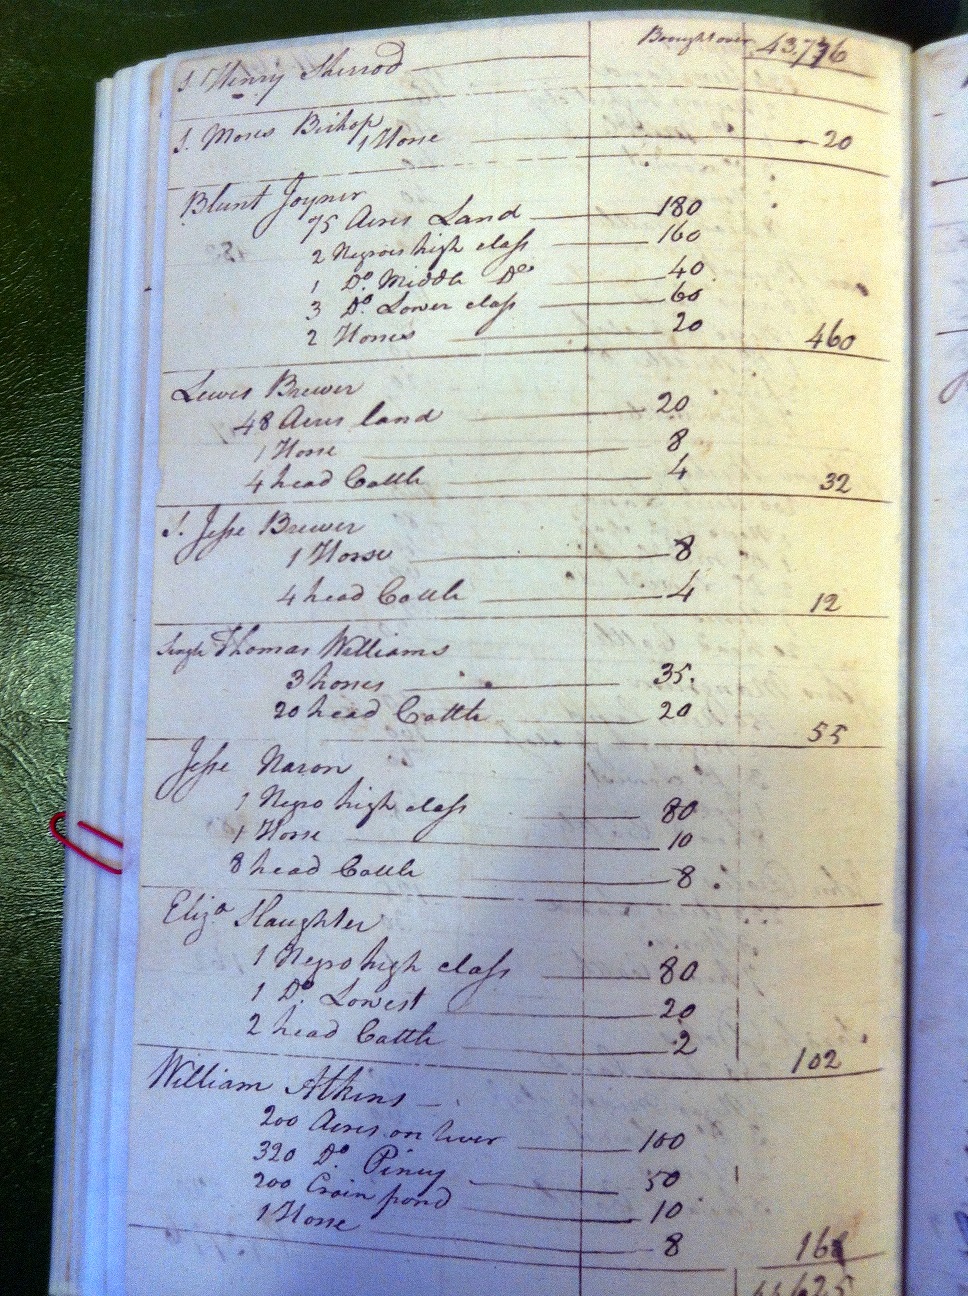 Brought over 43,736
S. Henry Sherrod
S. Moses Bishop
1 Horse 20
Blunt Joyner
75 Acres Land 180
2 Negroes high class 160
1 Do. Middle Do. 40
3 Do. Lower class 60
2 Horses 20 460
Lewis Brewer
48 Acres land 20
1 Horse 8
4 head Cattle 4 32
S. Jesse Brewer
1 Horse 8
4 head Cattle 4 12
Single Thomas Williams
3 horses 35.
20 head Cattle 20 55
Jesse Naron
1 Negro high class 80
1 Horse 10
8 head Cattle 8
Eliza Slaughter
1 Negro high class 80
1 Do. Lowest 20
2 head Cattle 2 102
William Atkins
200 Acres on river 100
320 Do. Piney 50
200 pond 10
1 Horse 8 168